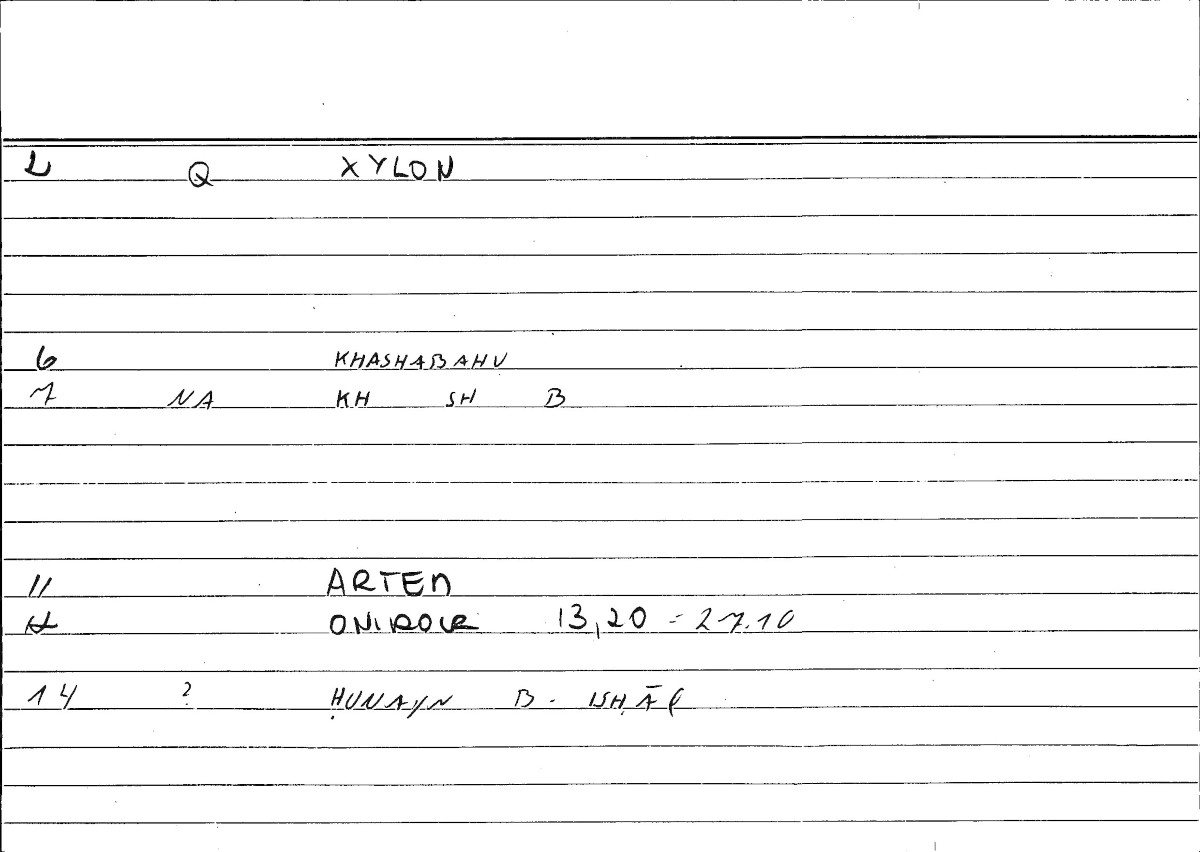 2 Q XYLON
6 KHASHABAHU
7 NA KH SH B
11 ARTEM
12 ONIROCR 13,20 - 27.10
14 ? ḤUNAYN B. ISḤĀQ